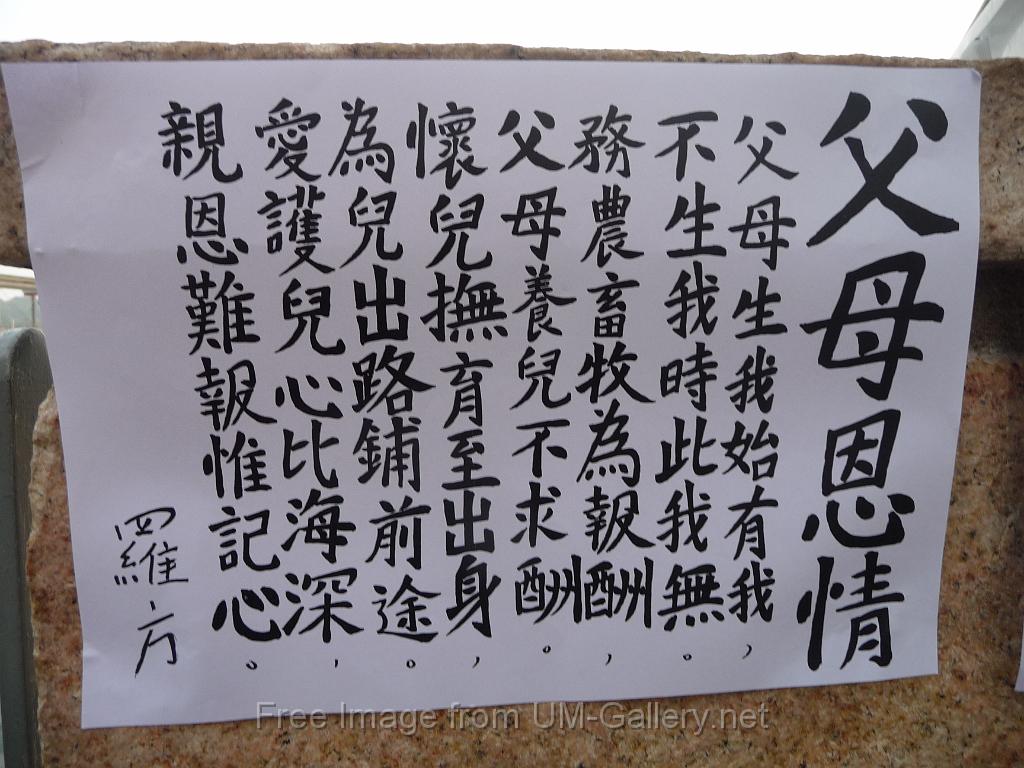 父母恩情
父母生我始有我，
不生我時此我無。
務農畜牧為報酬，
父母養兒不求酬。
懷兒撫育至出身，
為兒出路鋪前途。
愛護兒心比海深，
親恩難報惟記心。
四維方
Free Image from UM-Gallery.net